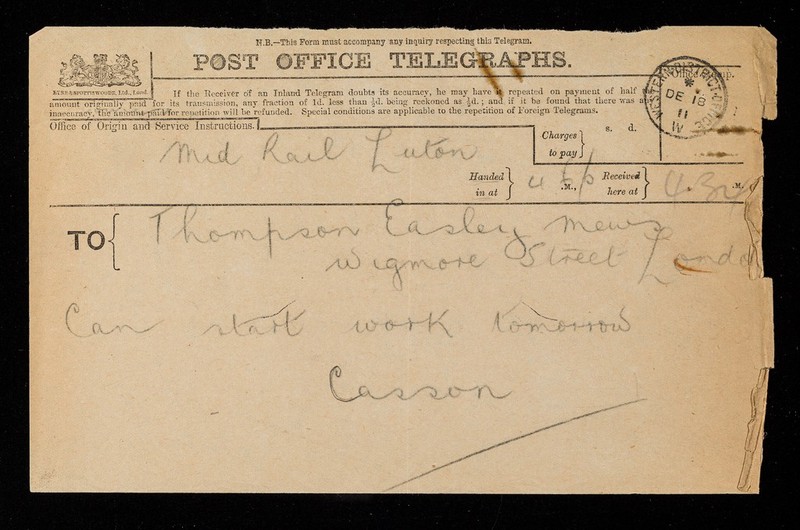 N.B.—This Form must accompany any inquiry respecting this Telegram.
POST OFFICE TELEGRAPHS.
If the Receiver of an Inland Telegram doubts its accuracy, he may have it repeated on payment of half the
amount originally paid for its transmission, any fraction of 1d. less than ½d. being reckoned as ½d.; and if it be found that there was any
inaccuracy, the amount paid for repetition will be refunded. Special conditions are applicable to the repetition of Foreign Telegrams.
Office of Origin and Service Instructions.
Charges to pay
s. d.
Mid Rail Luton
Handed in at
.M.,
Received here at
4.34
.M.
TO
Thompson Easley Mews
Wigmore Street London
Can start work tomorrow
Casson
WESTERN DISTRICT OFFICE
DE 18
11